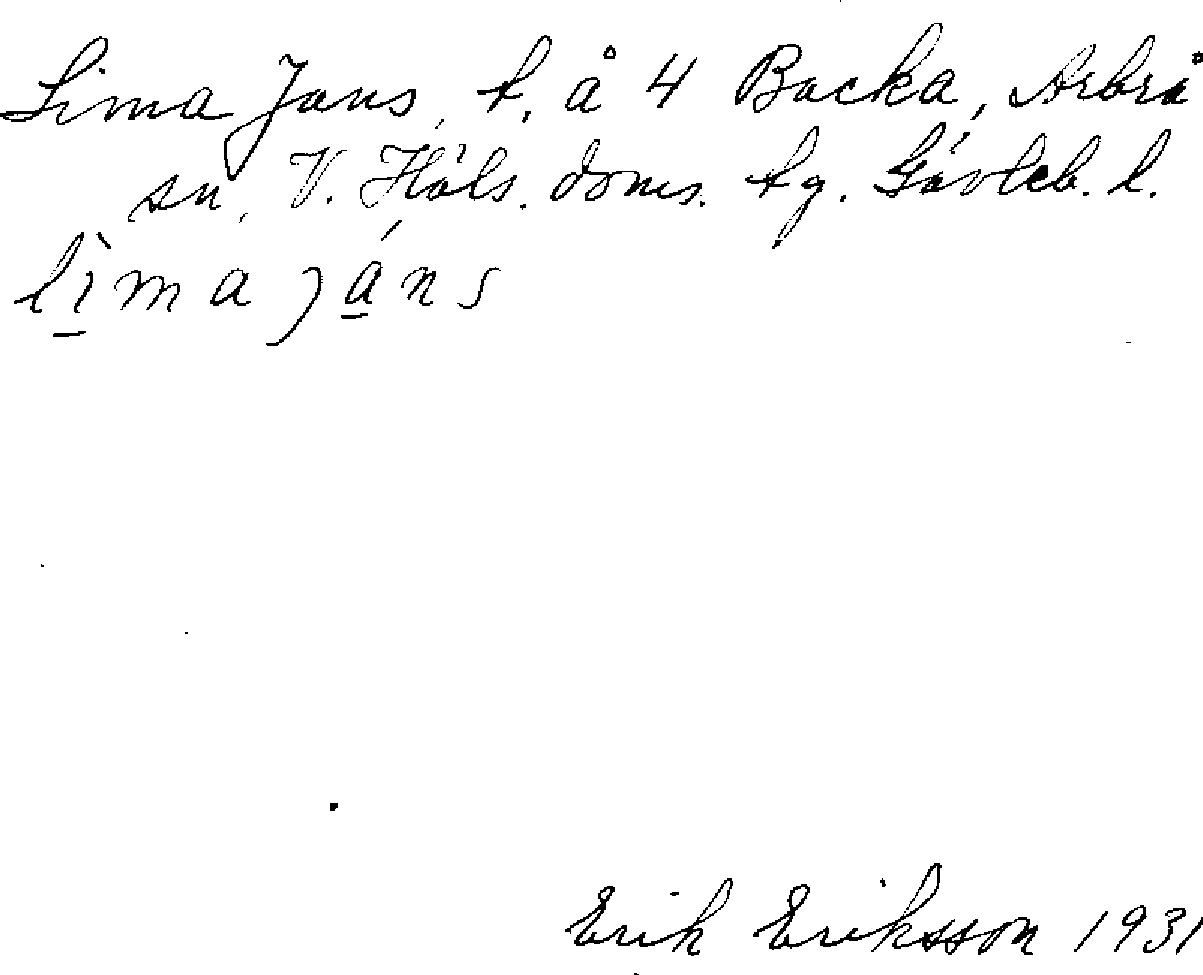 Lima Jans, t. å 4 Backa, Arbrå
sn, V. Häls. doms. tg. Gävleb. l.
lìma jáns
Erik Eriksson 1931